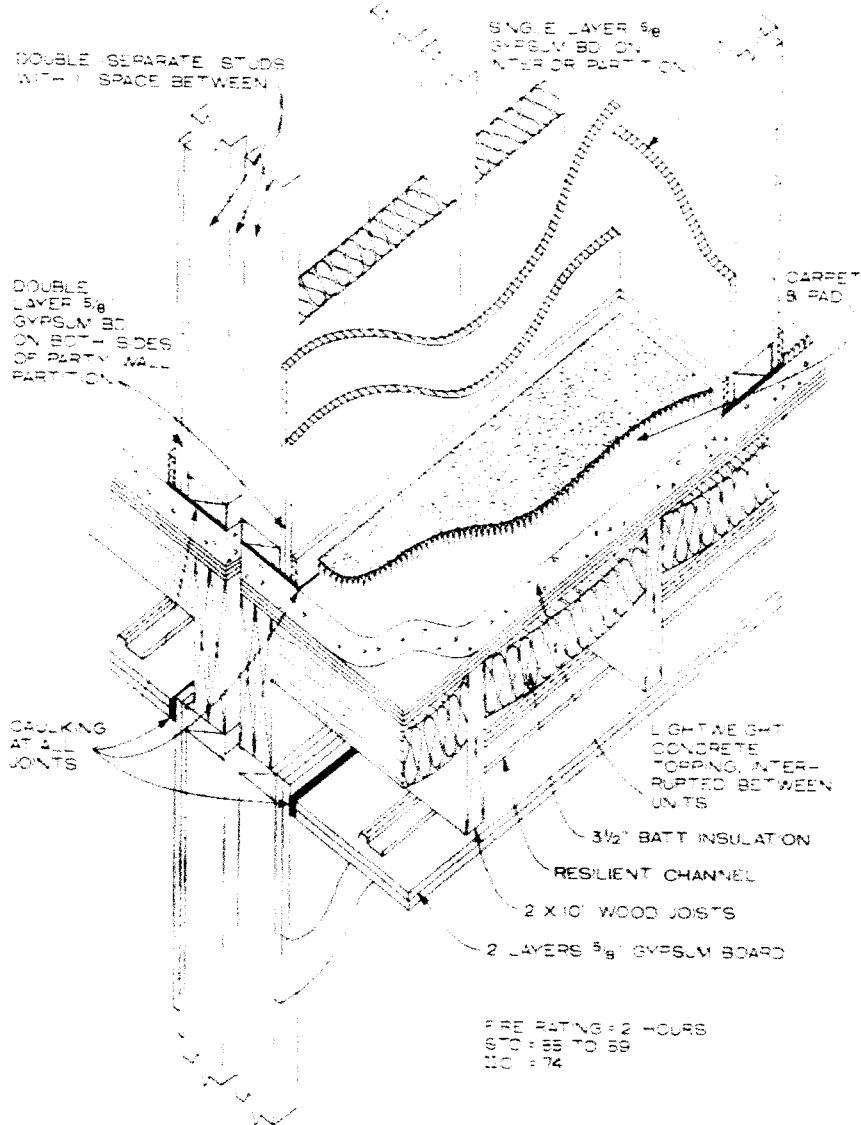 DOUBLE SEPARATE STUDS
WITH 1" SPACE BETWEEN
SINGLE LAYER 5/8
GYPSUM BD ON
INTERIOR PARTITION
DOUBLE
LAYER 5/8"
GYPSUM BD
ON BOTH SIDES
OF PARTY WALL
PARTITION
CARPET
& PAD
CAULKING
AT ALL
JOINTS
LIGHTWEIGHT
CONCRETE
TOPPING, INTER-
RUPTED BETWEEN
UNITS
3 1/2" BATT INSULATION
RESILIENT CHANNEL
2 X 10" WOOD JOISTS
2 LAYERS 5/8" GYPSUM BOARD
FIRE RATING = 2 HOURS
STC = 55 TO 59
IIC = 74